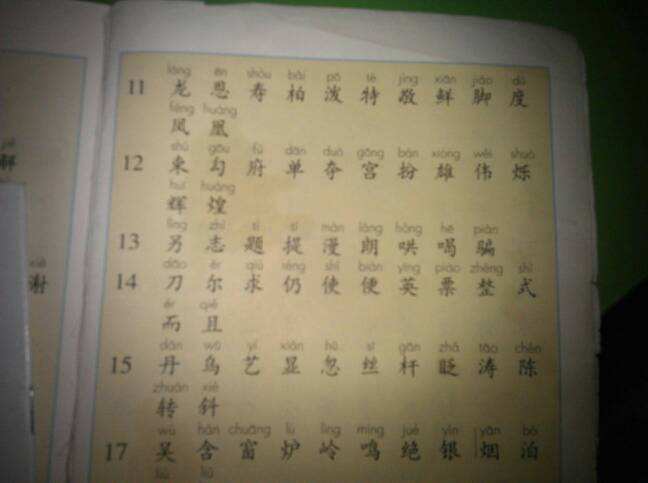 lóng ēn shòu bǎi pō tè jìng xiān jiǎo dù
11 龙 恩 寿 柏 泼 特 敬 鲜 脚 度
fèng huáng
凤 凰
shù gōu fǔ dān duó gōng bàn xióng wěi shuò
12 束 勾 府 单 夺 宫 扮 雄 伟 烁
huī huáng
辉 煌
lìng zhì tí tí màn lǎng hōng hē piàn
13 另 志 题 提 漫 朗 哄 喝 骗
dāo ěr qiú réng shǐ biàn yīng piào zhěng shì
14 刀 尔 求 仍 使 便 英 票 整 式
ér qiě
而 且
dān wū yì xiǎn hū sī gān zhǎ tāo chén
15 丹 乌 艺 显 忽 丝 杆 眨 涛 陈
zhuàn xié
转 斜
wú hán chuāng lú lǐng míng jué yín yān bó
17 吴 含 窗 炉 岭 鸣 绝 银 烟 泊
liú liǔ
xiè
谢
解